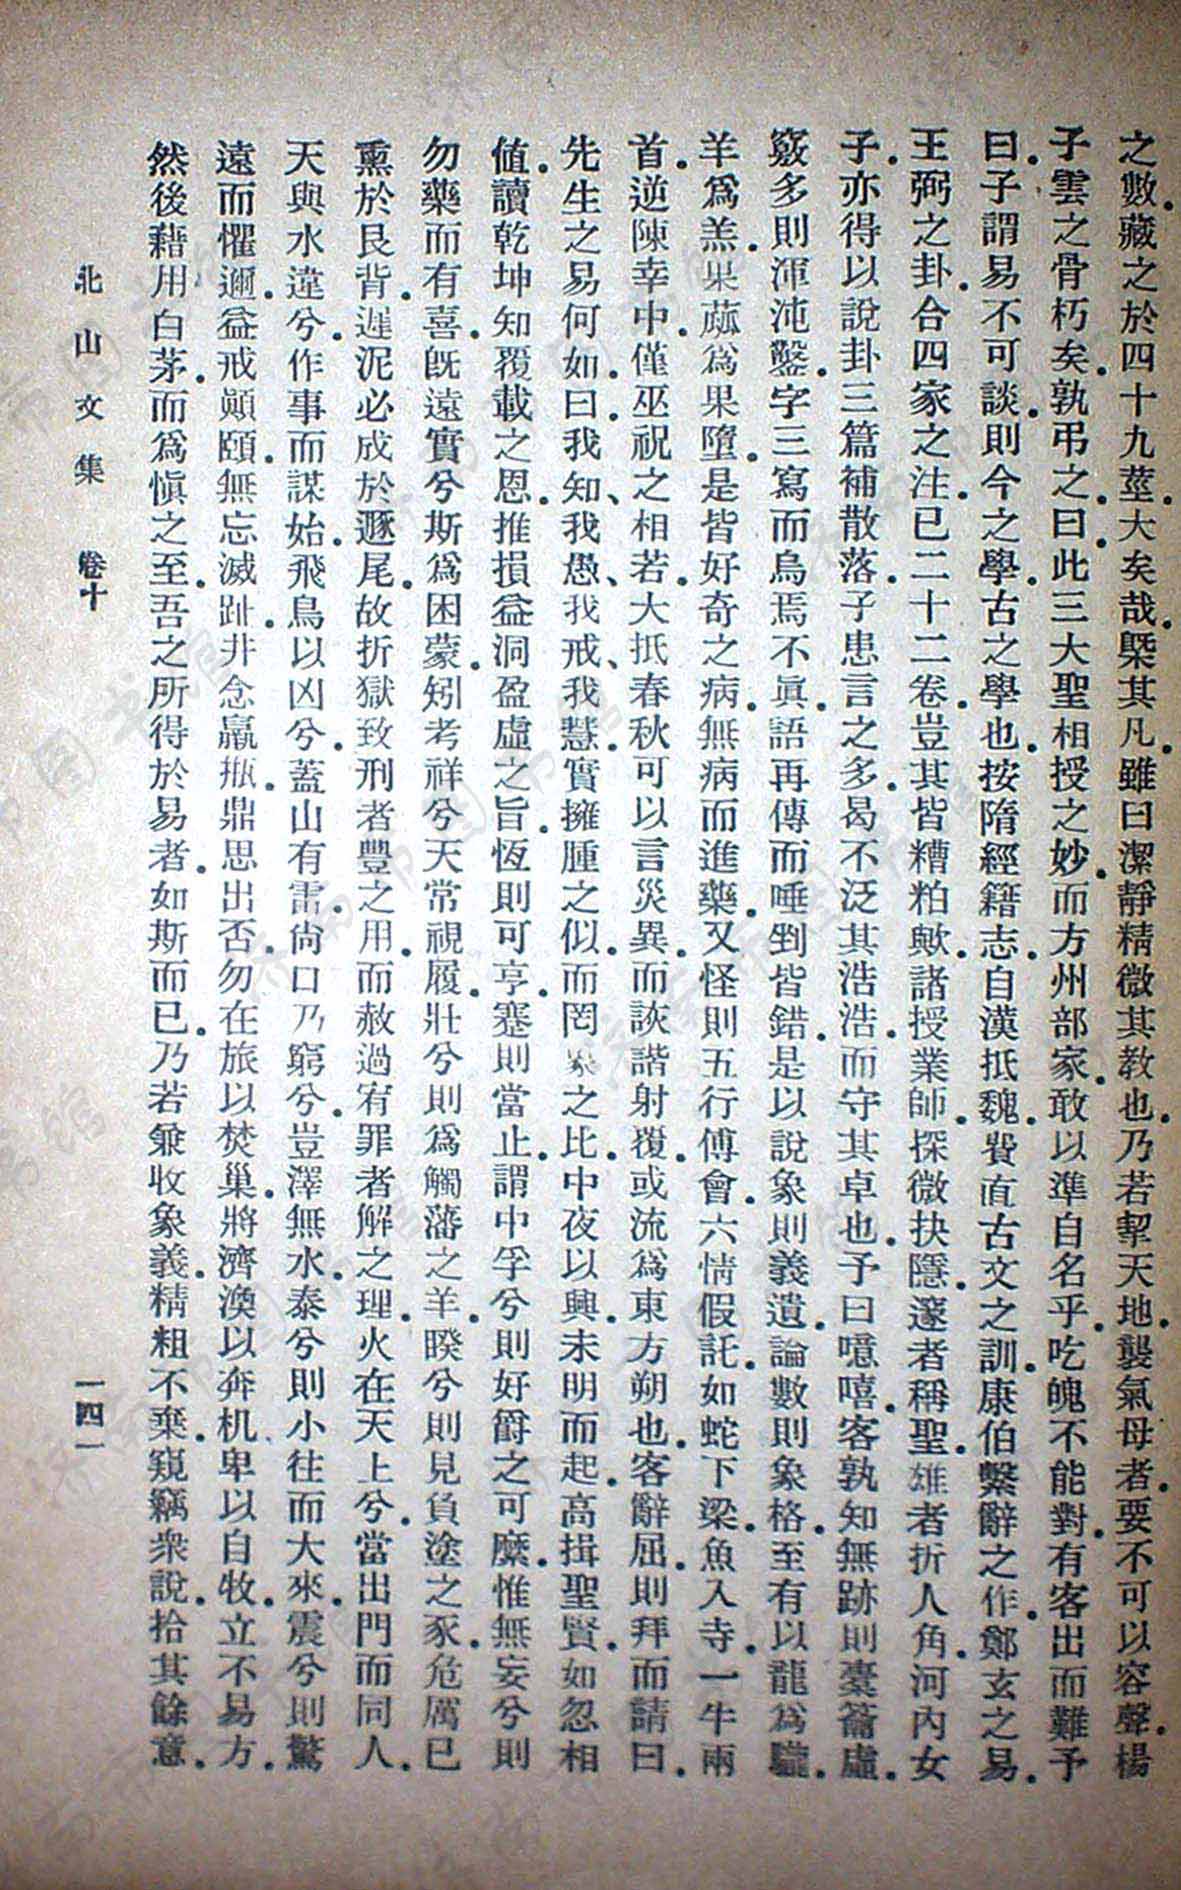 之數。藏之於四十九莖。大矣哉。槩其凡。雖曰潔靜精微其教也。乃若挈天地。襲氣母者。要不可以容聲。楊
子雲之骨朽矣。孰弔之。曰。此三大聖相授之妙。而方州部家。敢以準自名乎。吃魄不能對。有客出而難予
曰。子謂易不可談。則今之學。古之學也。按隋經籍志。自漢抵魏。費直古文之訓。康伯繫辭之作。鄭玄之易。
王弼之卦。合四家之注。已二十二卷。豈其皆糟粕歟。諸授業師。探微抉隱。邃者稱聖。雄者折人角。河內女
子。亦得以說卦三篇補散落。子患言之多。曷不泛其浩浩。而守其卓也。予曰。噫嘻。客孰知無跡則橐籥虛。
竅多則渾沌鑿。字三寫而烏焉不眞。語再傳而唾剉皆錯。是以說象則義遺。論數則象格。至有以龍爲驪。
羊爲羔。果蓏爲果墮。是皆好奇之病。無病而進藥。又怪則五行傅會。六情假託。如蛇下梁。魚入寺。一牛兩
首。逆陳幸中。僅巫祝之相若。大抵春秋可以言災異。而詼諧射覆。或流爲東方朔也。客辭屈。則拜而請曰。
先生之易何如。曰。我知、我愚、我戒、我慧。實擁腫之似。而罔象之比。中夜以興。未明而起。高揖聖賢。如忽相
値。讀乾坤知覆載之恩。推損益洞盈虛之旨。恆則可亨。蹇則當止。謂中孚兮則好爵之可縻。惟無妄兮則
勿藥而有喜。旣遠實兮斯爲困蒙。矧考祥兮天常視履。壯兮則爲觸藩之羊。睽兮則見負塗之豕。危厲已
熏於艮背。遲泥必成於遯尾。故折獄致刑者豐之用。而赦過宥罪者解之理。火在天上兮。當出門而同人。
天與水違兮。作事而謀始。飛鳥以凶兮。蓋山有雷。尙口乃窮兮。豈澤無水。泰兮則小往而大來。震兮則驚
遠而懼邇。益戒顚頤。無忘滅趾。井念羸瓶。鼎思出否。勿在旅以焚巢。將濟渙以奔机。卑以自牧。立不易方。
然後藉用白茅。而爲愼之至。吾之所得於易者。如斯而已。乃若兼收象義。精粗不棄。窺竊衆說。拾其餘意。
北山文集 卷十 一四一